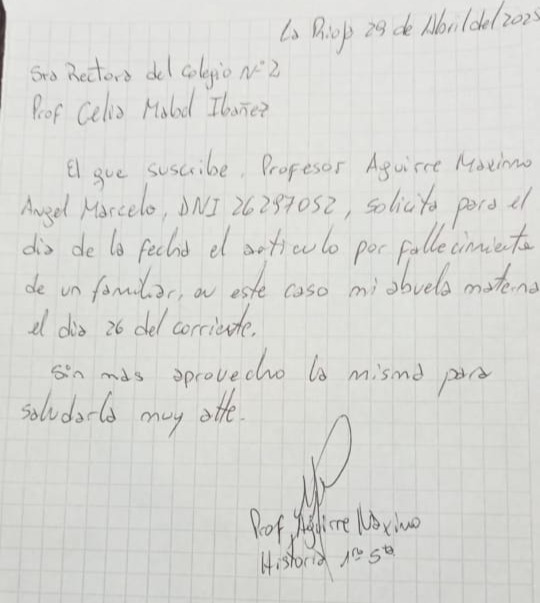 La Rioja 29 de Abril del 2025
Sra Rectora del colegio N°2
Prof Celia Mabel Ibañez
El que suscribe, Profesor Aguirre Maximo
Angel Marcelo, DNI 26297052, solicita para el
dia de la fecha el articulo por fallecimiento
de un familiar, en este caso mi abuela materna
el dia 26 del corriente.
Sin mas aprovecho la misma para
saludarla muy atte.
Prof Aguirre Maximo
Historia 1ro 5ta